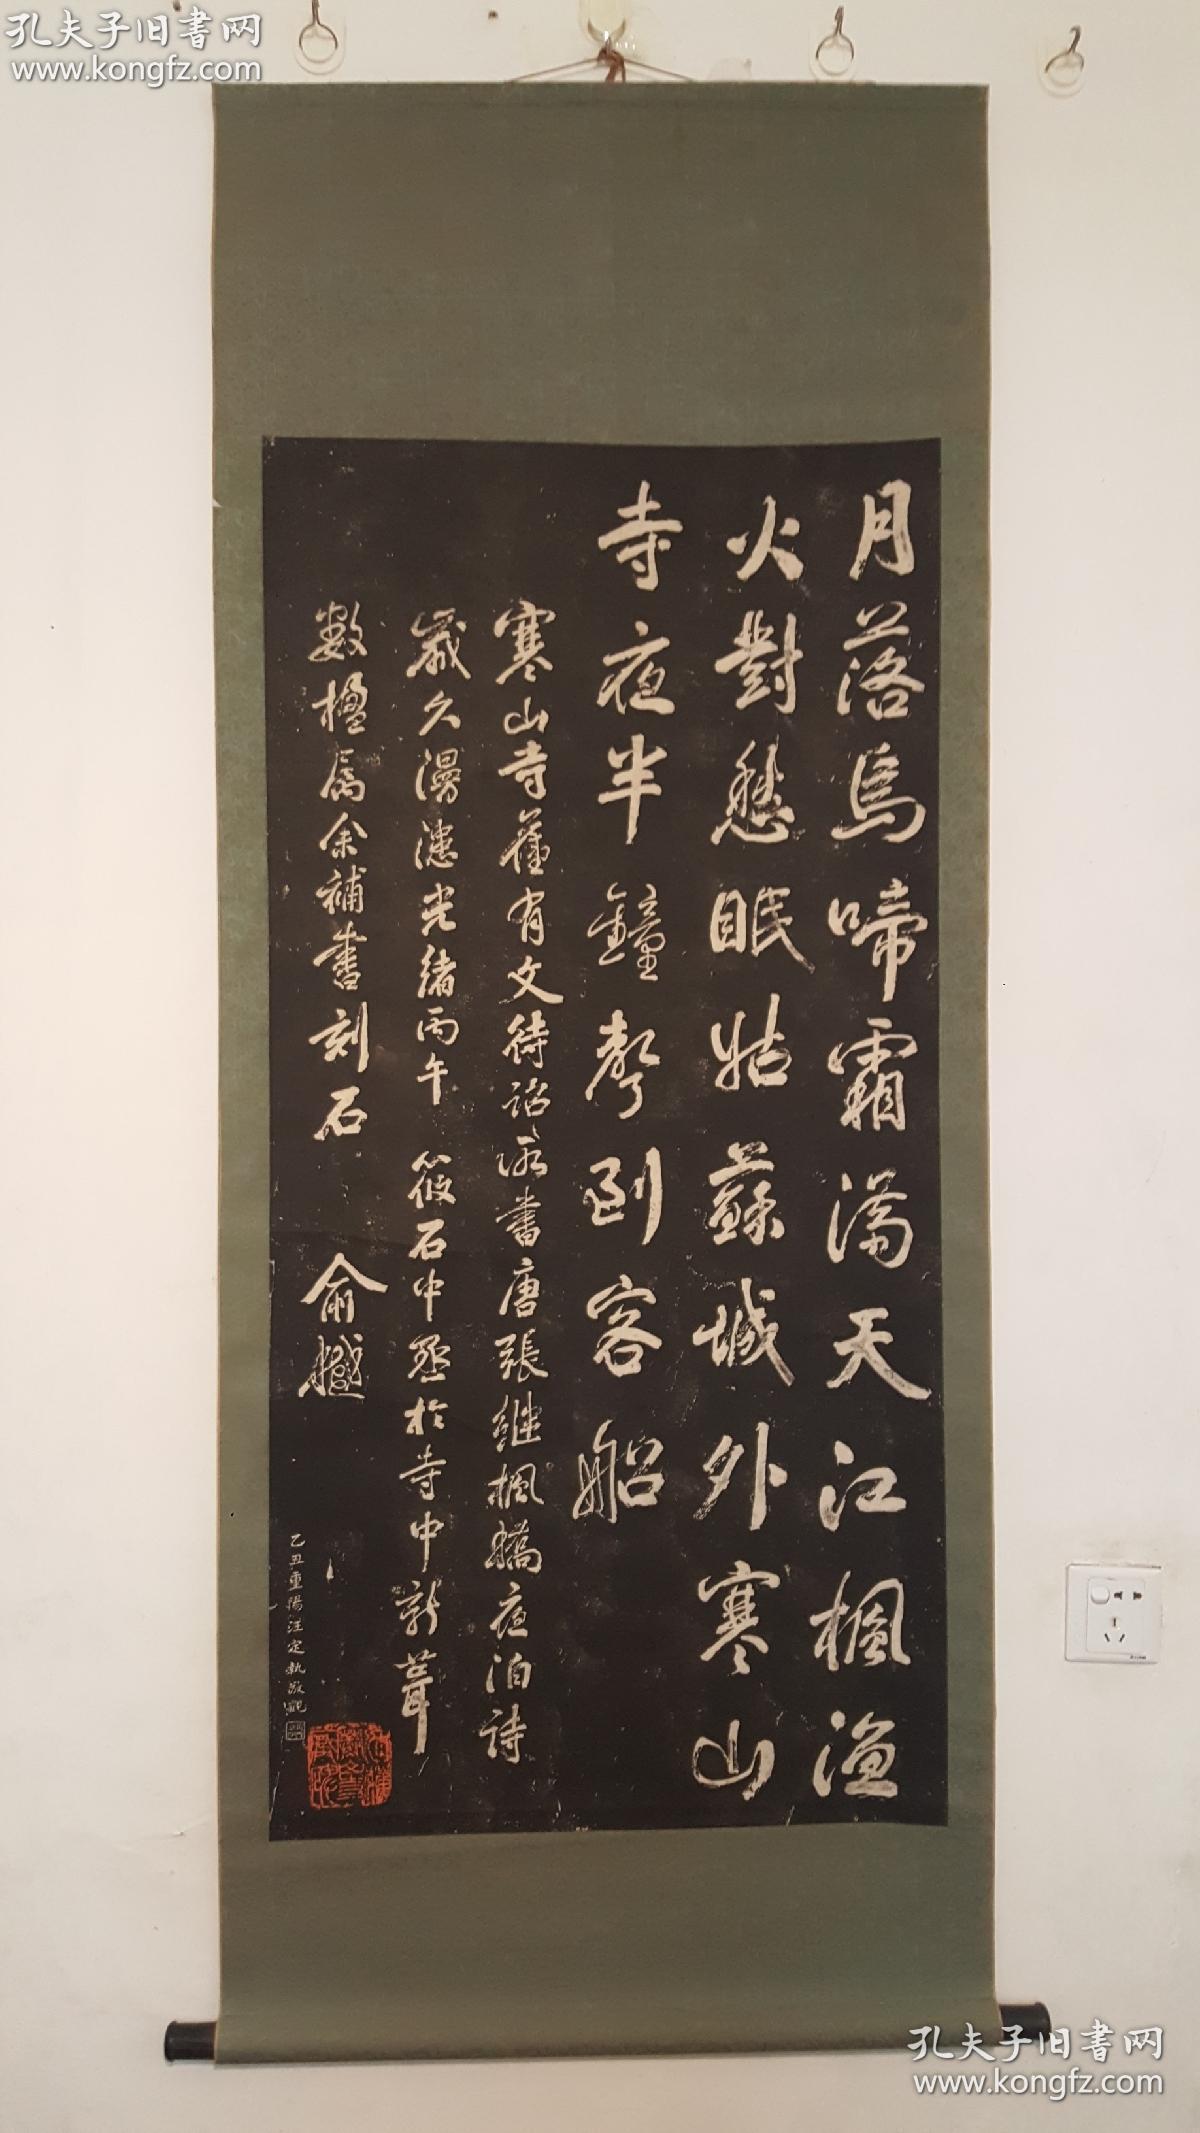 孔夫子旧書网
www.kongfz.com
月落烏啼霜滿天江楓漁
火對愁眠姑蘇城外寒山
寺夜半鐘聲到客船
寒山寺舊有文待詔所書唐張繼楓橋夜泊詩
歲久漫漶光緒丙午筱石中丞於寺中新葺
數楹屬余補書刻石
俞樾
乙丑重陽汪定執敬觀
孔夫子旧書网
www.kongfz.com